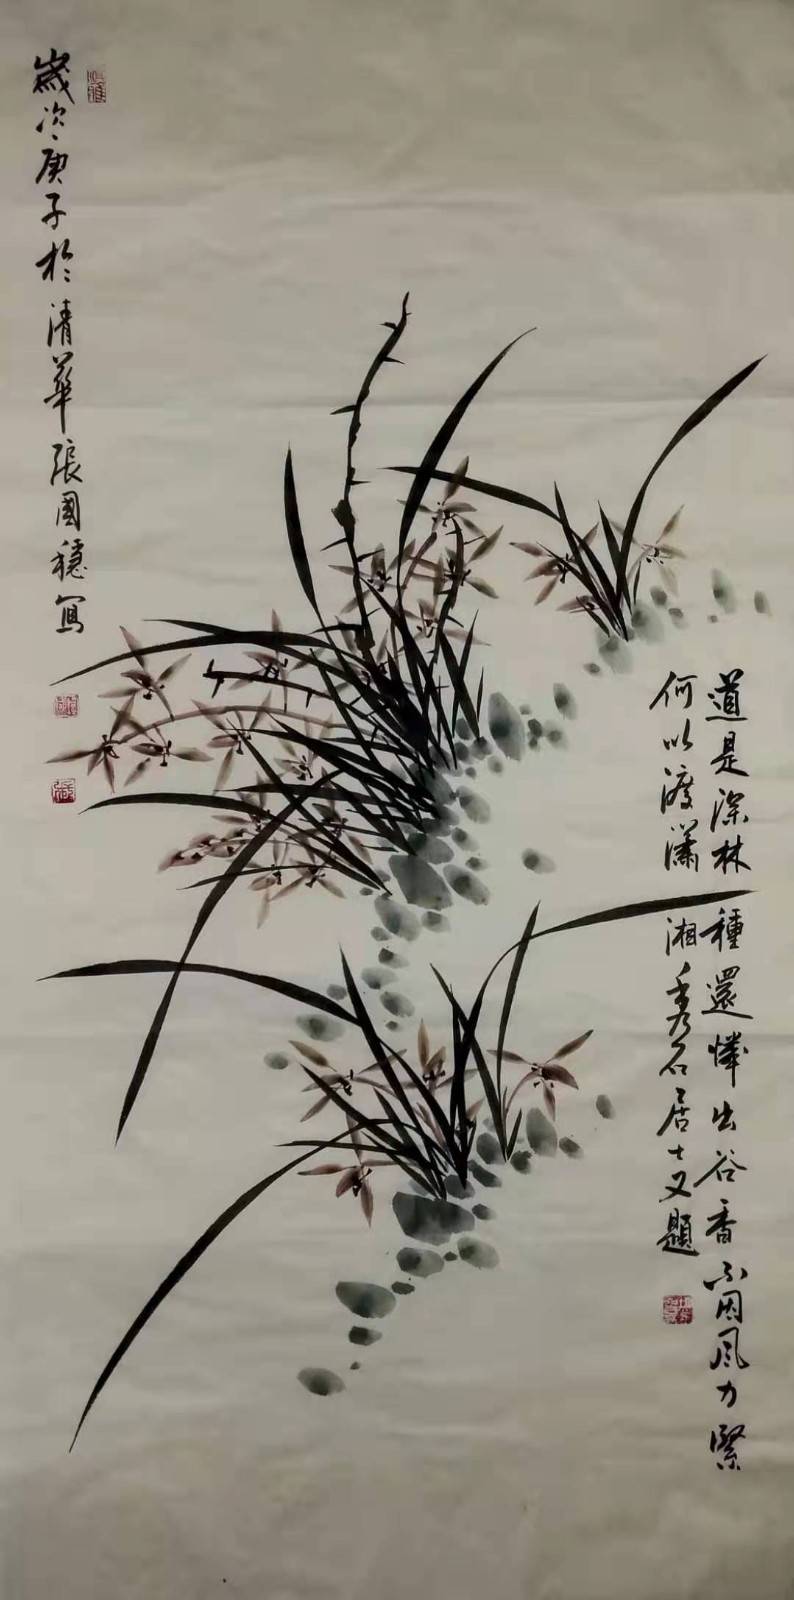 道是深林種還憐出谷香不因風力緊
何以渡瀟湘秀石居士又題
歲次庚子於清華張國穩寫